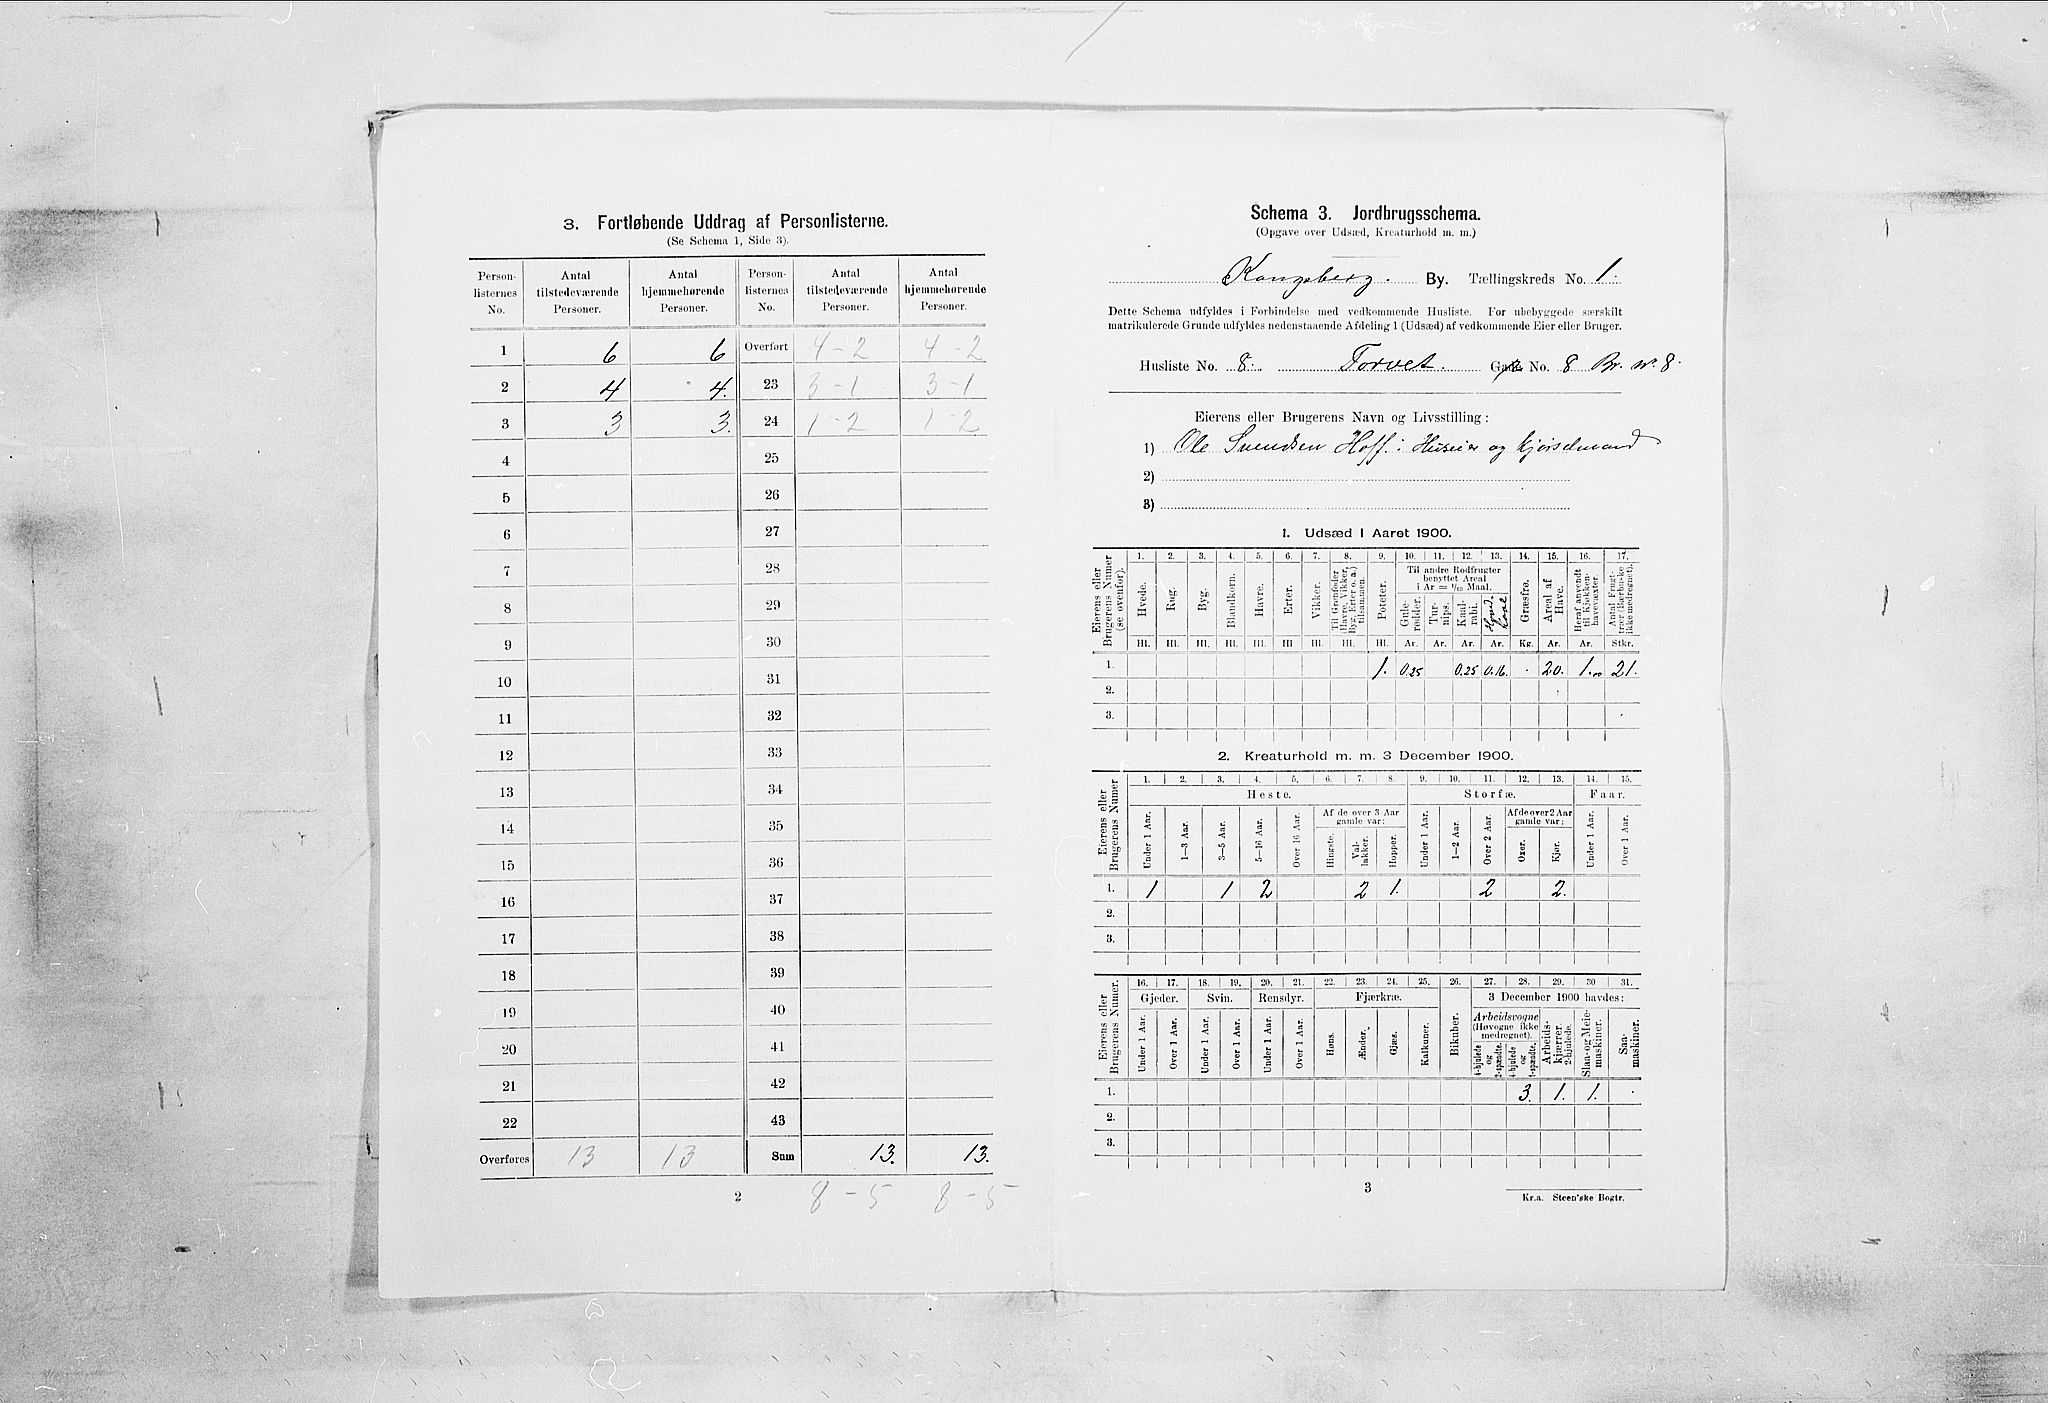 3. Fortløbende Uddrag af Personlisterne.
(Se Schema 1, Side 3).
Person-listernes No. | Antal tilstedeværende Personer. | Antal hjemmehørende Personer. | Person-listernes No. | Antal tilstedeværende Personer. | Antal hjemmehørende Personer.
1 6 6 Overført 4-2 4-2
2 4 4. 23 3-1 3-1
3 3 3. 24 1-2 1-2
4 25
5 26
6 27
7 28
8 29
9 30
10 31
11 32
12 33
13 34
14 35
15 36
16 37
17 38
18 39
19 40
20 41
21 42
22 43
Overføres 13 13 Sum 13. 13.
2 8-5 8-5
Schema 3. Jordbrugsschema.
(Opgave over Udsæd, Kreaturhold m. m.)
Kongsberg. By. Tællingskreds No. 1.
Dette Schema udfyldes i Forbindelse med vedkommende Husliste. For ubebyggede særskilt
matrikulerede Grunde udfyldes nedenstaaende Afdeling 1 (Udsæd) af vedkommende Eier eller Bruger.
Husliste No. 8. Torvet. Gade No. 8 Br. N. 8.
Eierens eller Brugerens Navn og Livsstilling:
1) Ole Svendsen Hoff: Huseier og Kjørselmand
2)
3)
1. Udsæd i Aaret 1900.
Eierens eller Brugerens Numer (se ovenfor). 1. 2. 3. 4. 5. 6. 7. 8. 9. 10. 11. 12. 13. 14. 15. 16. 17.
Hvede. Rug. Byg. Blandkorn. Havre. Erter. Vikker. Til Grønfoder (Havre, Vikker, Byg, Erter o. a.) tilsammen. Poteter. Til andre Rodfrugter benyttet Areal i Ar = 1/10 Maal. Gule-rødder. Tur-nips. Kaal-rabi. Hoved Kaal Græsfrø. Areal af Have. Heraf anvendt til Kjøkken-havevæxter. Antal Frugt-trær (Bærbuske ikke medregnet).
Hl. Hl. Hl. Hl. Hl. Hl Hl. Hl. Hl. Ar. Ar. Ar. Ar. Kg. Ar. Ar. Stkr.
1. 1. 0.25 0.25 0.16. 20. 1.00 21.
2.
3.
2. Kreaturhold m. m. 3 December 1900.
Eierens eller Brugerens Numer 1. 2. 3. 4. 5. 6. 7. 8. 9. 10. 11. 12. 13. 14. 15.
Heste. Storfæ. Faar.
Under 1 Aar. 1—3 Aar. 3—5 Aar. 5—16 Aar. Over 16 Aar. Af de over 3 Aar gamle var: Hingste. Val-lakker. Hopper. Under 1 Aar. 1—2 Aar. Over 2 Aar. Af de over 2 Aar gamle var: Oxer. Kjør. Under 1 Aar. Over 1 Aar.
1. 1 1 2 2 1. 2 2.
2.
3.
Eierens eller Brugerens Numer. 16. 17. 18. 19. 20. 21. 22. 23. 24. 25. 26. 27. 28. 29. 30 31.
Gjeder. Svin. Rensdyr. Fjærkræ. Bikuber. 3 December 1900 havdes:
Under 1 Aar. Over 1 Aar. Under 1 Aar. Over 1 Aar. Under 1 Aar. Over 1 Aar. Høns. Ænder. Gjæs. Kalkuner. Arbeidsvogne (Høvogne ikke medregnet). 4-hjulede og 2-spændte. 4-hjulede og 1-spændte. Arbeids-kjærrer. 2-hjulede. Slaa- og Meie-maskiner. Saa-maskiner.
1. 3. 1. 1.
2.
3.
3
Kr.a. Steen'ske Bogtr.